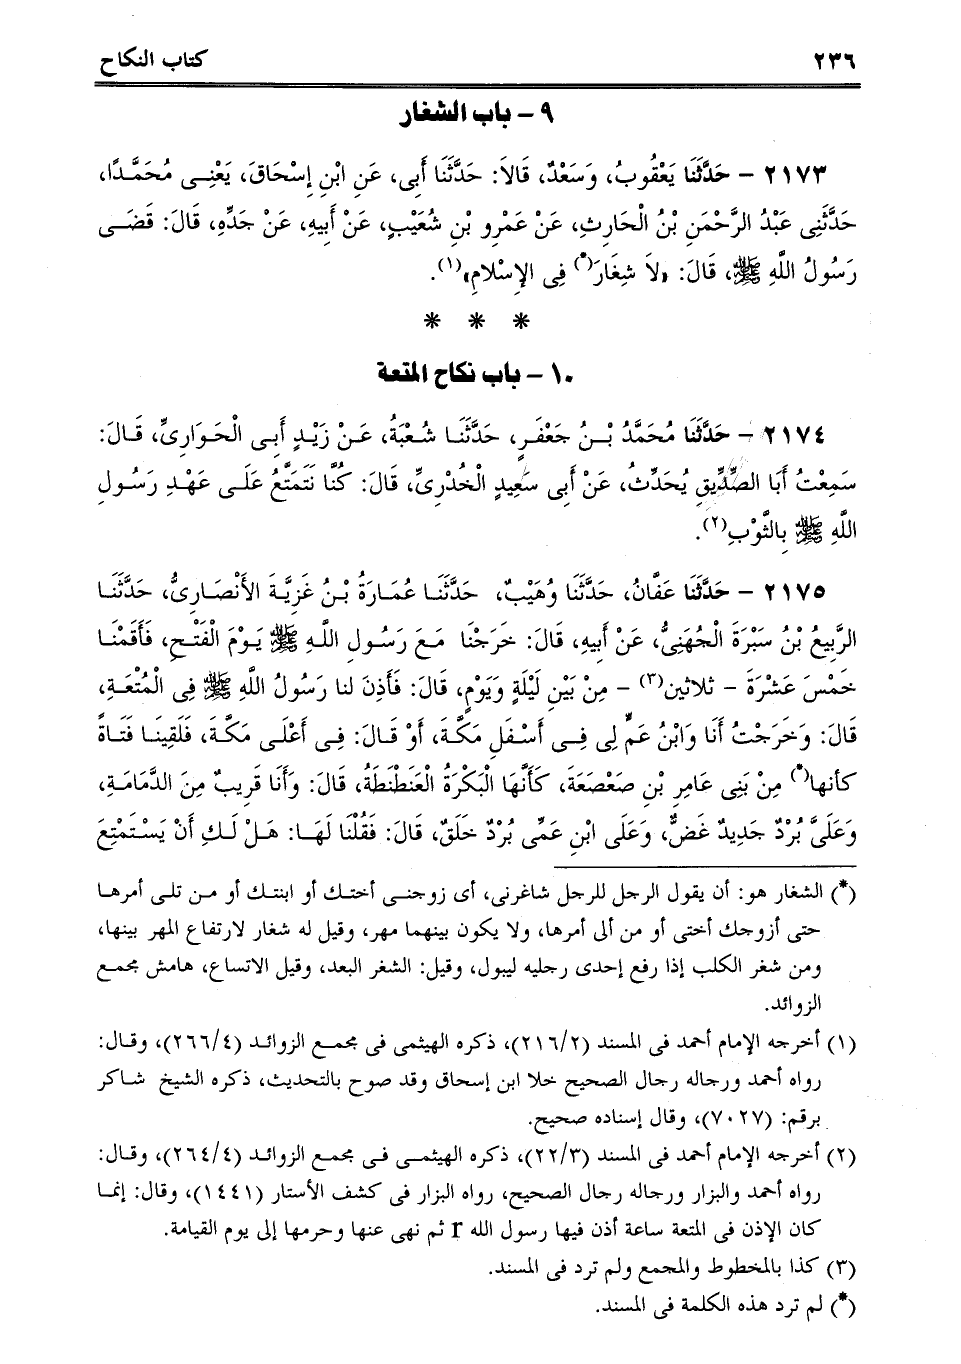 ٢٣٦ كتاب النكاح
٩ - باب الشغار
٢١٧٣ - حَدَّثَنَا يَعْقُوبُ، وَسَعْدٌ، قَالاَ: حَدَّثَنَا أَبِى، عَنِ ابْنِ إِسْحَاقَ، يَعْنِى مُحَمَّدًا،
حَدَّثَنِى عَبْدُ الرَّحْمَنِ بْنُ الْحَارِثِ، عَنْ عَمْرِو بْنِ شُعَيْبٍ، عَنْ أَبِيهِ، عَنْ جَدِّهِ، قَالَ: قَضَى
رَسُولُ اللَّهِ ﷺ، قَالَ: «لاَ شِغَارَ(*) فِى الإِسْلامِ»(١).
* * *
١٠ - باب نكاح المتعة
٢١٧٤ - حَدَّثَنَا مُحَمَّدُ بْنُ جَعْفَرٍ، حَدَّثَنَا شُعْبَةُ، عَنْ زَيْدٍ أَبِى الْحَوَارِىِّ، قَالَ:
سَمِعْتُ أَبَا الصِّدِّيقِ يُحَدِّثُ، عَنْ أَبِى سَعِيدٍ الْخُدْرِىِّ، قَالَ: كُنَّا نَتَمَتَّعُ عَلَى عَهْدِ رَسُولِ
اللَّهِ ﷺ بِالثَّوْبِ(٢).
٢١٧٥ - حَدَّثَنَا عَفَّانُ، حَدَّثَنَا وُهَيْبٌ، حَدَّثَنَا عُمَارَةُ بْنُ غَزِيَّةَ الأَنْصَارِىُّ، حَدَّثَنَا
الرَّبِيعُ بْنُ سَبْرَةَ الْجُهَنِىُّ، عَنْ أَبِيهِ، قَالَ: خَرَجْنَا مَعَ رَسُولِ اللَّهِ ﷺ يَوْمَ الْفَتْحِ، فَأَقَمْنَا
خَمْسَ عَشْرَةَ - ثلاثين(٣) - مِنْ بَيْنِ لَيْلَةٍ وَيَوْمٍ، قَالَ: فَأَذِنَ لنا رَسُولُ اللَّهِ ﷺ فِى الْمُتْعَةِ،
قَالَ: وَخَرَجْتُ أَنَا وَابْنُ عَمٍّ لِى فِى أَسْفَلِ مَكَّةَ، أَوْ قَالَ: فِى أَعْلَى مَكَّةَ، فَلَقِينَا فَتَاةً
كأنها(*) مِنْ بَنِى عَامِرِ بْنِ صَعْصَعَةَ، كَأَنَّهَا الْبَكْرَةُ الْعَنَطْنَطَةُ، قَالَ: وَأَنَا قَرِيبٌ مِنَ الدَّمَامَةِ،
وَعَلَىَّ بُرْدٌ جَدِيدٌ غَضٌّ، وَعَلَى ابْنِ عَمِّى بُرْدٌ خَلَقٌ، قَالَ: فَقُلْنَا لَهَا: هَلْ لَكِ أَنْ يَسْتَمْتِعَ
(*) الشغار هو: أن يقول الرجل للرجل شاغرنى، أى زوجنى أختك أو ابنتك أو من تلى أمرها
حتى أزوجك أختى أو من ألى أمرها، ولا يكون بينهما مهر، وقيل له شغار لارتفاع المهر بينها،
ومن شغر الكلب إذا رفع إحدى رجليه ليبول، وقيل: الشغر البعد، وقيل الاتساع، هامش مجمع
الزوائد.
(١) أخرجه الإمام أحمد فى المسند (٢١٦/٢)، ذكره الهيثمى فى مجمع الزوائد (٢٦٦/٤)، وقال:
رواه أحمد ورجاله رجال الصحيح خلا ابن إسحاق وقد صوح بالتحديث، ذكره الشيخ شاكر
برقم: (٧٠٢٧)، وقال إسناده صحيح.
(٢) أخرجه الإمام أحمد فى المسند (٢٢/٣)، ذكره الهيثمى فى مجمع الزوائد (٢٦٤/٤)، وقال:
رواه أحمد والبزار ورجاله رجال الصحيح، رواه البزار فى كشف الأستار (١٤٤١)، وقال: إنما
كان الإذن فى المتعة ساعة أذن فيها رسول الله r ثم نهى عنها وحرمها إلى يوم القيامة.
(٣) كذا بالمخطوط والمجمع ولم ترد فى المسند.
(*) لم ترد هذه الكلمة فى المسند.